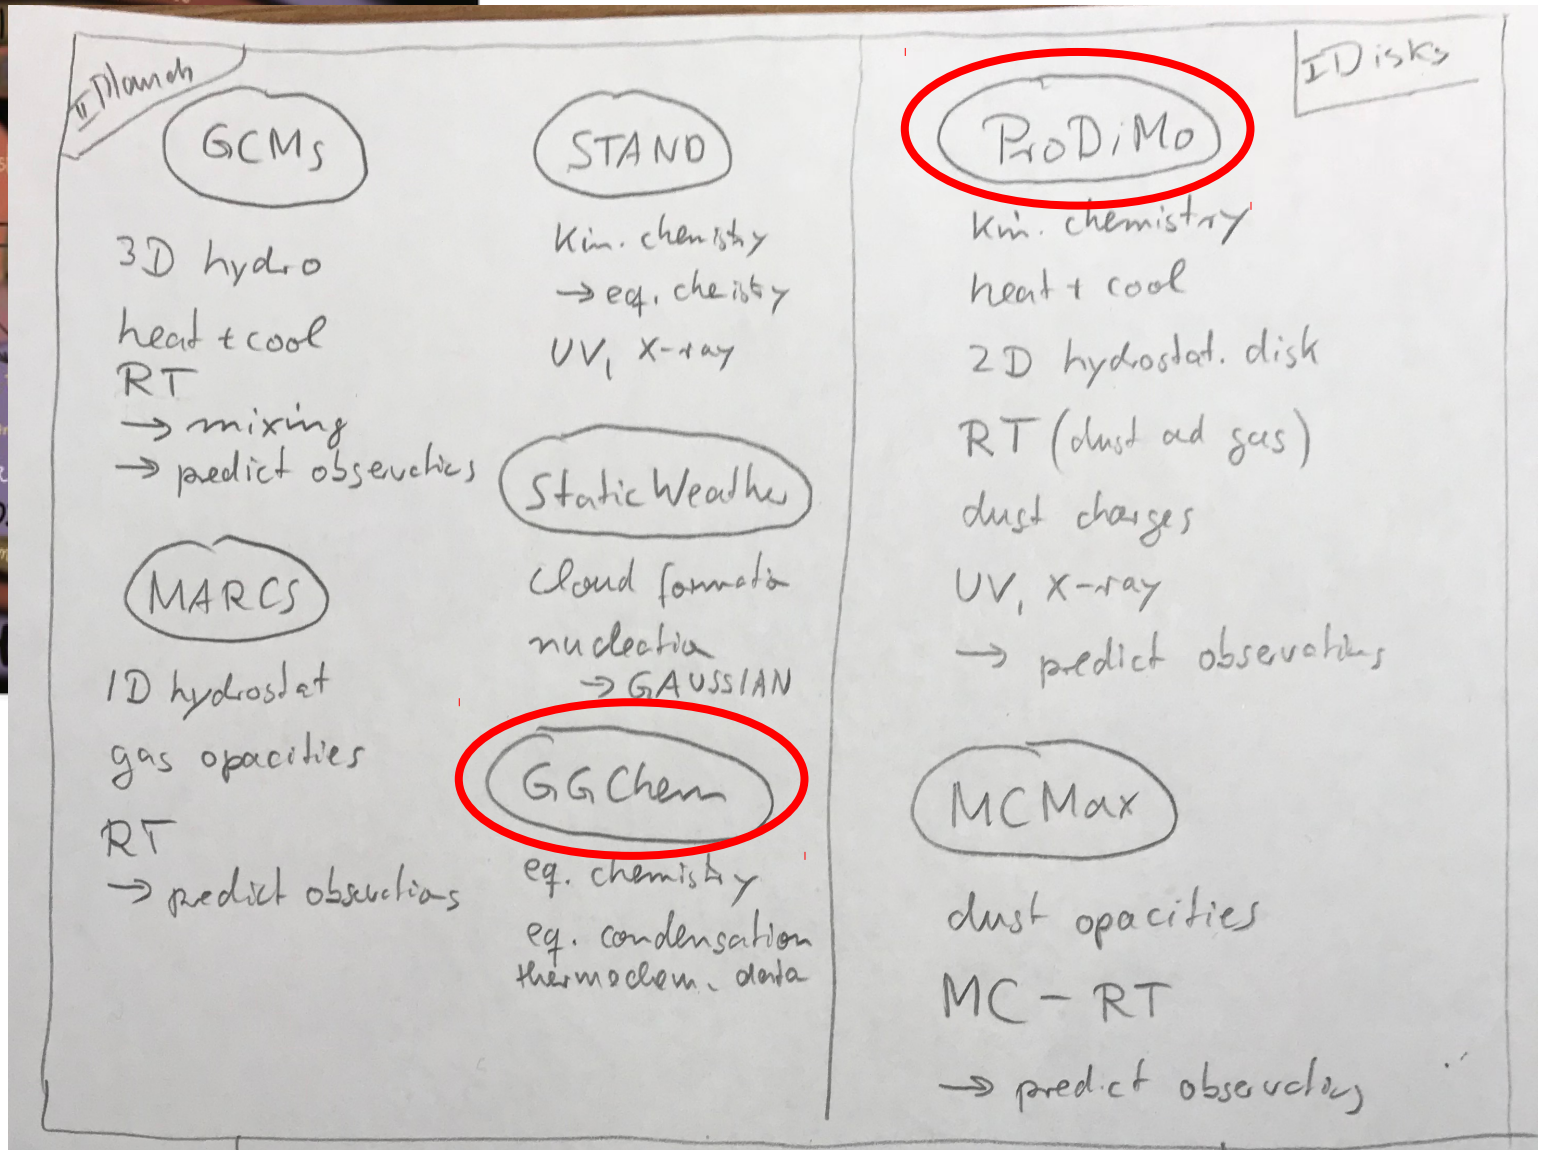 II Planets
GCMs
3D hydro
heat + cool
RT
→ mixing
→ predict observations
MARCS
1D hydrostat
gas opacities
RT
→ predict observations
STAND
Kin. chemistry
→ eq. cheistry
UV, X-ray
Static Weather
Cloud formation
nucleation
→ GAUSSIAN
GGChem
eq. chemistry
eq. condensation
thermochem. data
I Disks
ProDiMo
Kin. chemistry
heat + cool
2D hydrostat. disk
RT (dust ad gas)
dust charges
UV, X-ray
→ predict observations
MCMax
dust opacities
MC - RT
→ predict observations